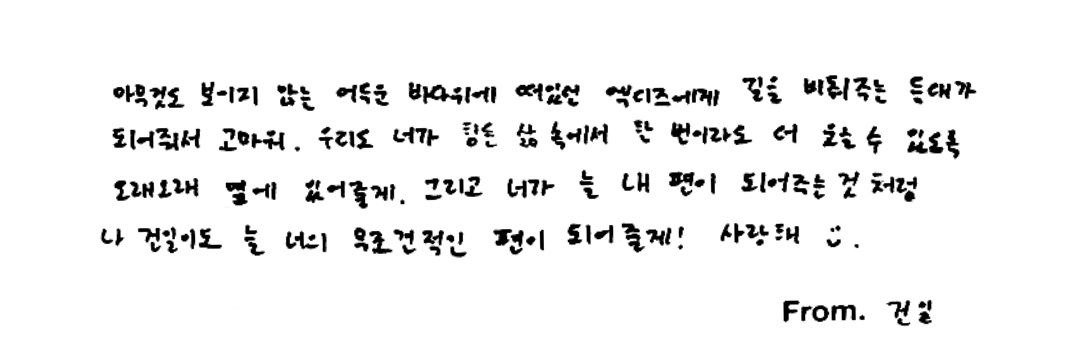 아무것도 보이지 않는 어두운 바다위에 떠있던 엑디즈에게 길을 비춰주는 등대가
되어줘서 고마워. 우리도 너가 힘든 삶 속에서 한 번이라도 더 웃을 수 있도록
오래오래 옆에 있어줄게. 그리고 너가 늘 내 편이 되어주는 것 처럼
나 건일이도 늘 너의 무조건적인 편이 되어줄게! 사랑해 :).
From. 건일